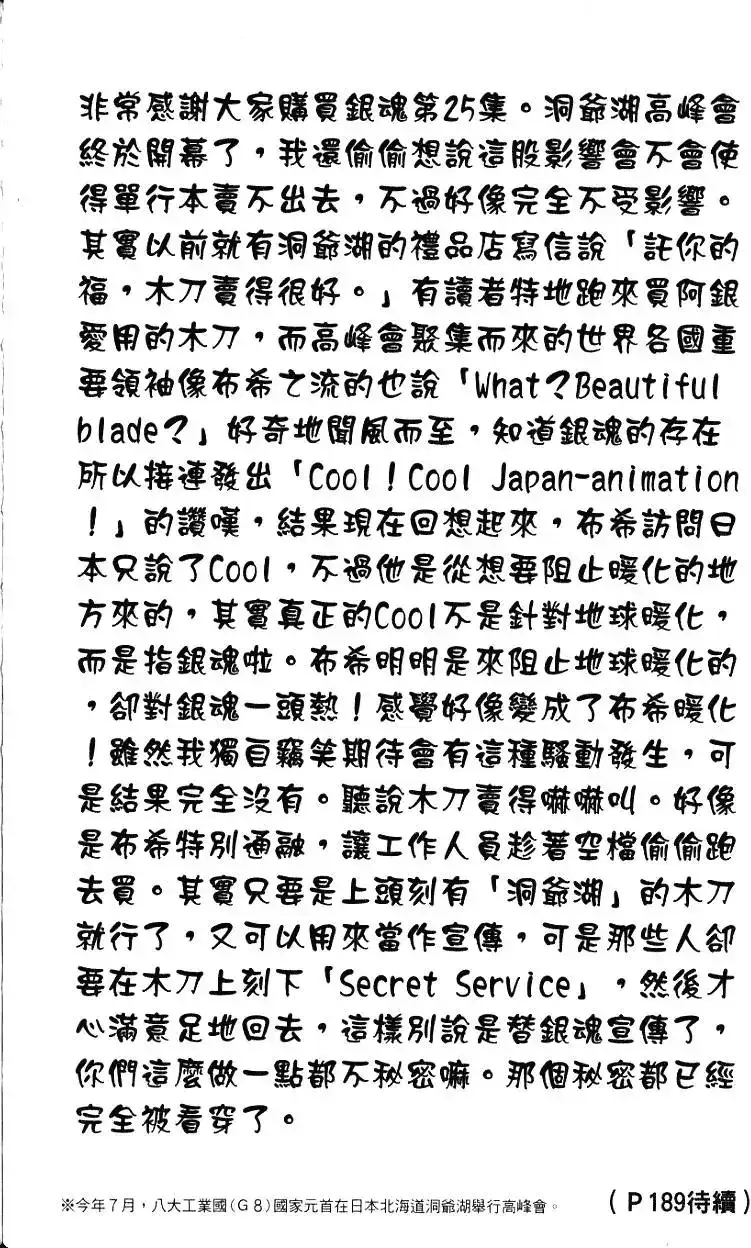 非常感謝大家購買銀魂第25集。洞爺湖高峰會
終於開幕了，我還偷偷想說這股影響會不會使
得單行本賣不出去，不過好像完全不受影響。
其實以前就有洞爺湖的禮品店寫信說「託你的
福，木刀賣得很好。」有讀者特地跑來買阿銀
愛用的木刀，而高峰會聚集而來的世界各國重
要領袖像布希之流的也說「What？Beautiful
blade？」好奇地聞風而至，知道銀魂的存在
所以接連發出「Cool！Cool Japan-animation
！」的讚嘆，結果現在回想起來，布希訪問日
本只說了Cool，不過他是從想要阻止暖化的地
方來的，其實真正的Cool不是針對地球暖化，
而是指銀魂啦。布希明明是來阻止地球暖化的
，卻對銀魂一頭熱！感覺好像變成了布希暖化
！雖然我獨自竊笑期待會有這種騷動發生，可
是結果完全沒有。聽說木刀賣得嚇嚇叫。好像
是布希特別通融，讓工作人員趁著空檔偷偷跑
去買。其實只要是上頭刻有「洞爺湖」的木刀
就行了，又可以用來當作宣傳，可是那些人卻
要在木刀上刻下「Secret Service」，然後才
心滿意足地回去，這樣別說是替銀魂宣傳了，
你們這麼做一點都不秘密嘛。那個秘密都已經
完全被看穿了。
※今年7月，八大工業國(G8)國家元首在日本北海道洞爺湖舉行高峰會。
（P189待續）